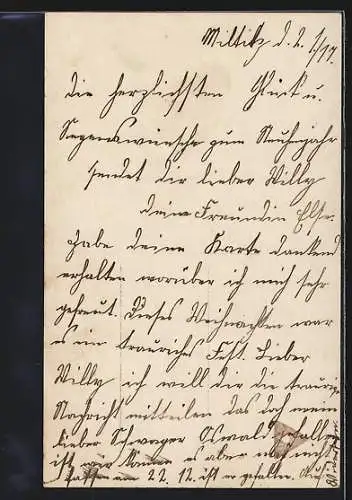 Miltitz d. 2. 1/17.
Die herzlichsten Glück u.
Segenswünsche zum Neuenjahr
sendet dir lieber Willy
deine Freundin Else.
habe deine Karte dankend
erhalten worüber ich mich sehr
gefreut. Dieses Weihnachten war
es ein trauriches Fest. Lieber
Willy ich will dir die traurige
Nachricht mitteilen das doch mein
lieber Schwager Oswald gefallen
ist wir können es aber nicht
fassen am 22. 12. ist er gefallen. Auf